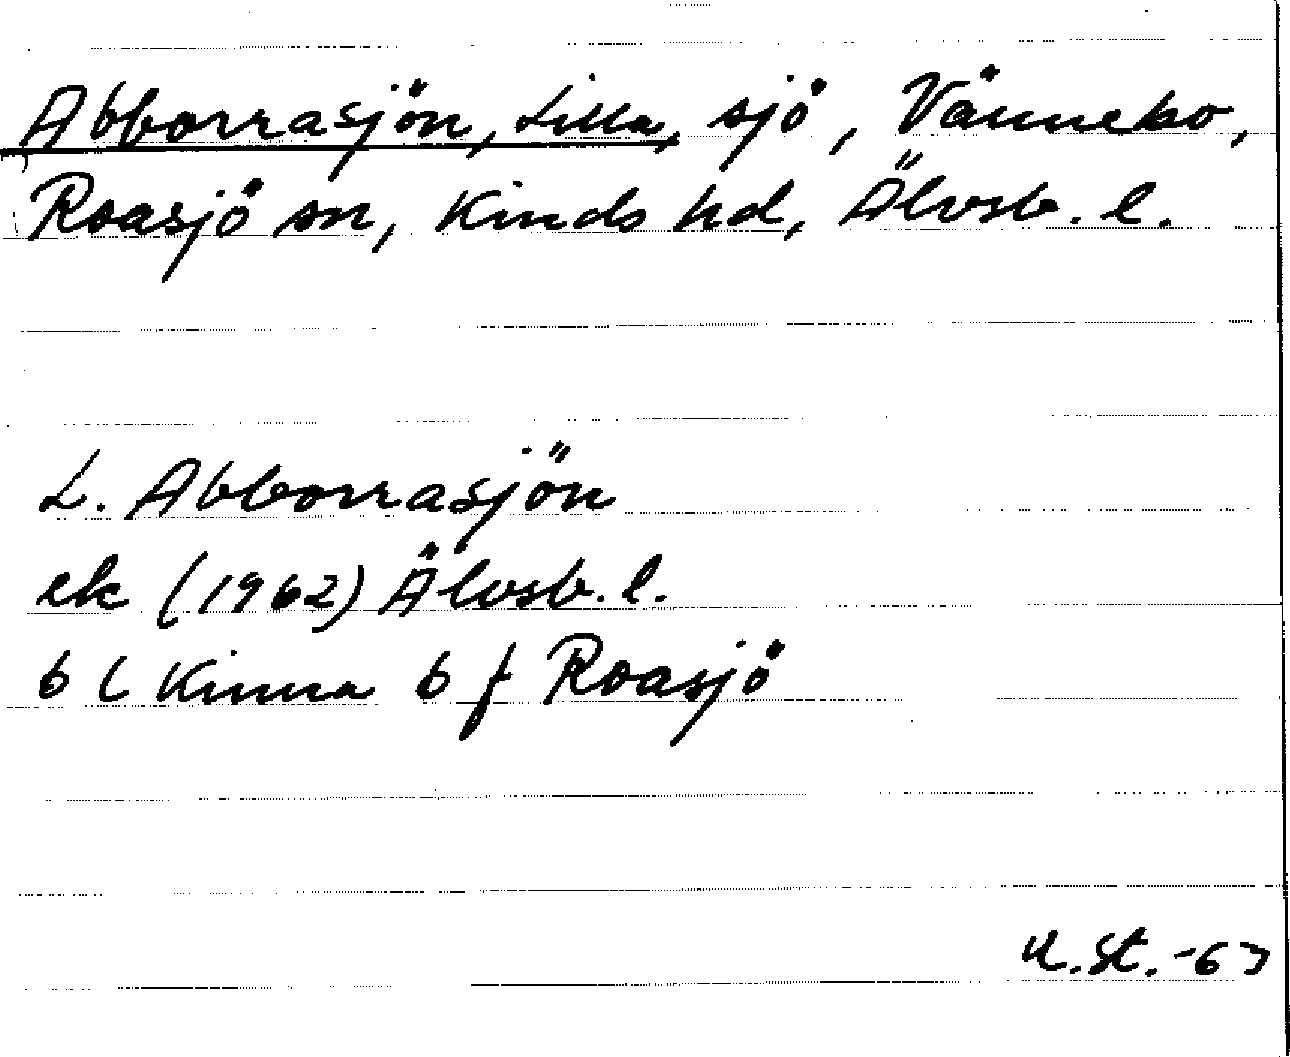 Abborrasjön, Lilla, sjö, Vännebo,
Roasjö sn, Kinds hd, Älvsb. l.
L. Abborrasjön
ek (1962) Älvsb. l.
6 C Kinna 6 f Roasjö
U.St.-63